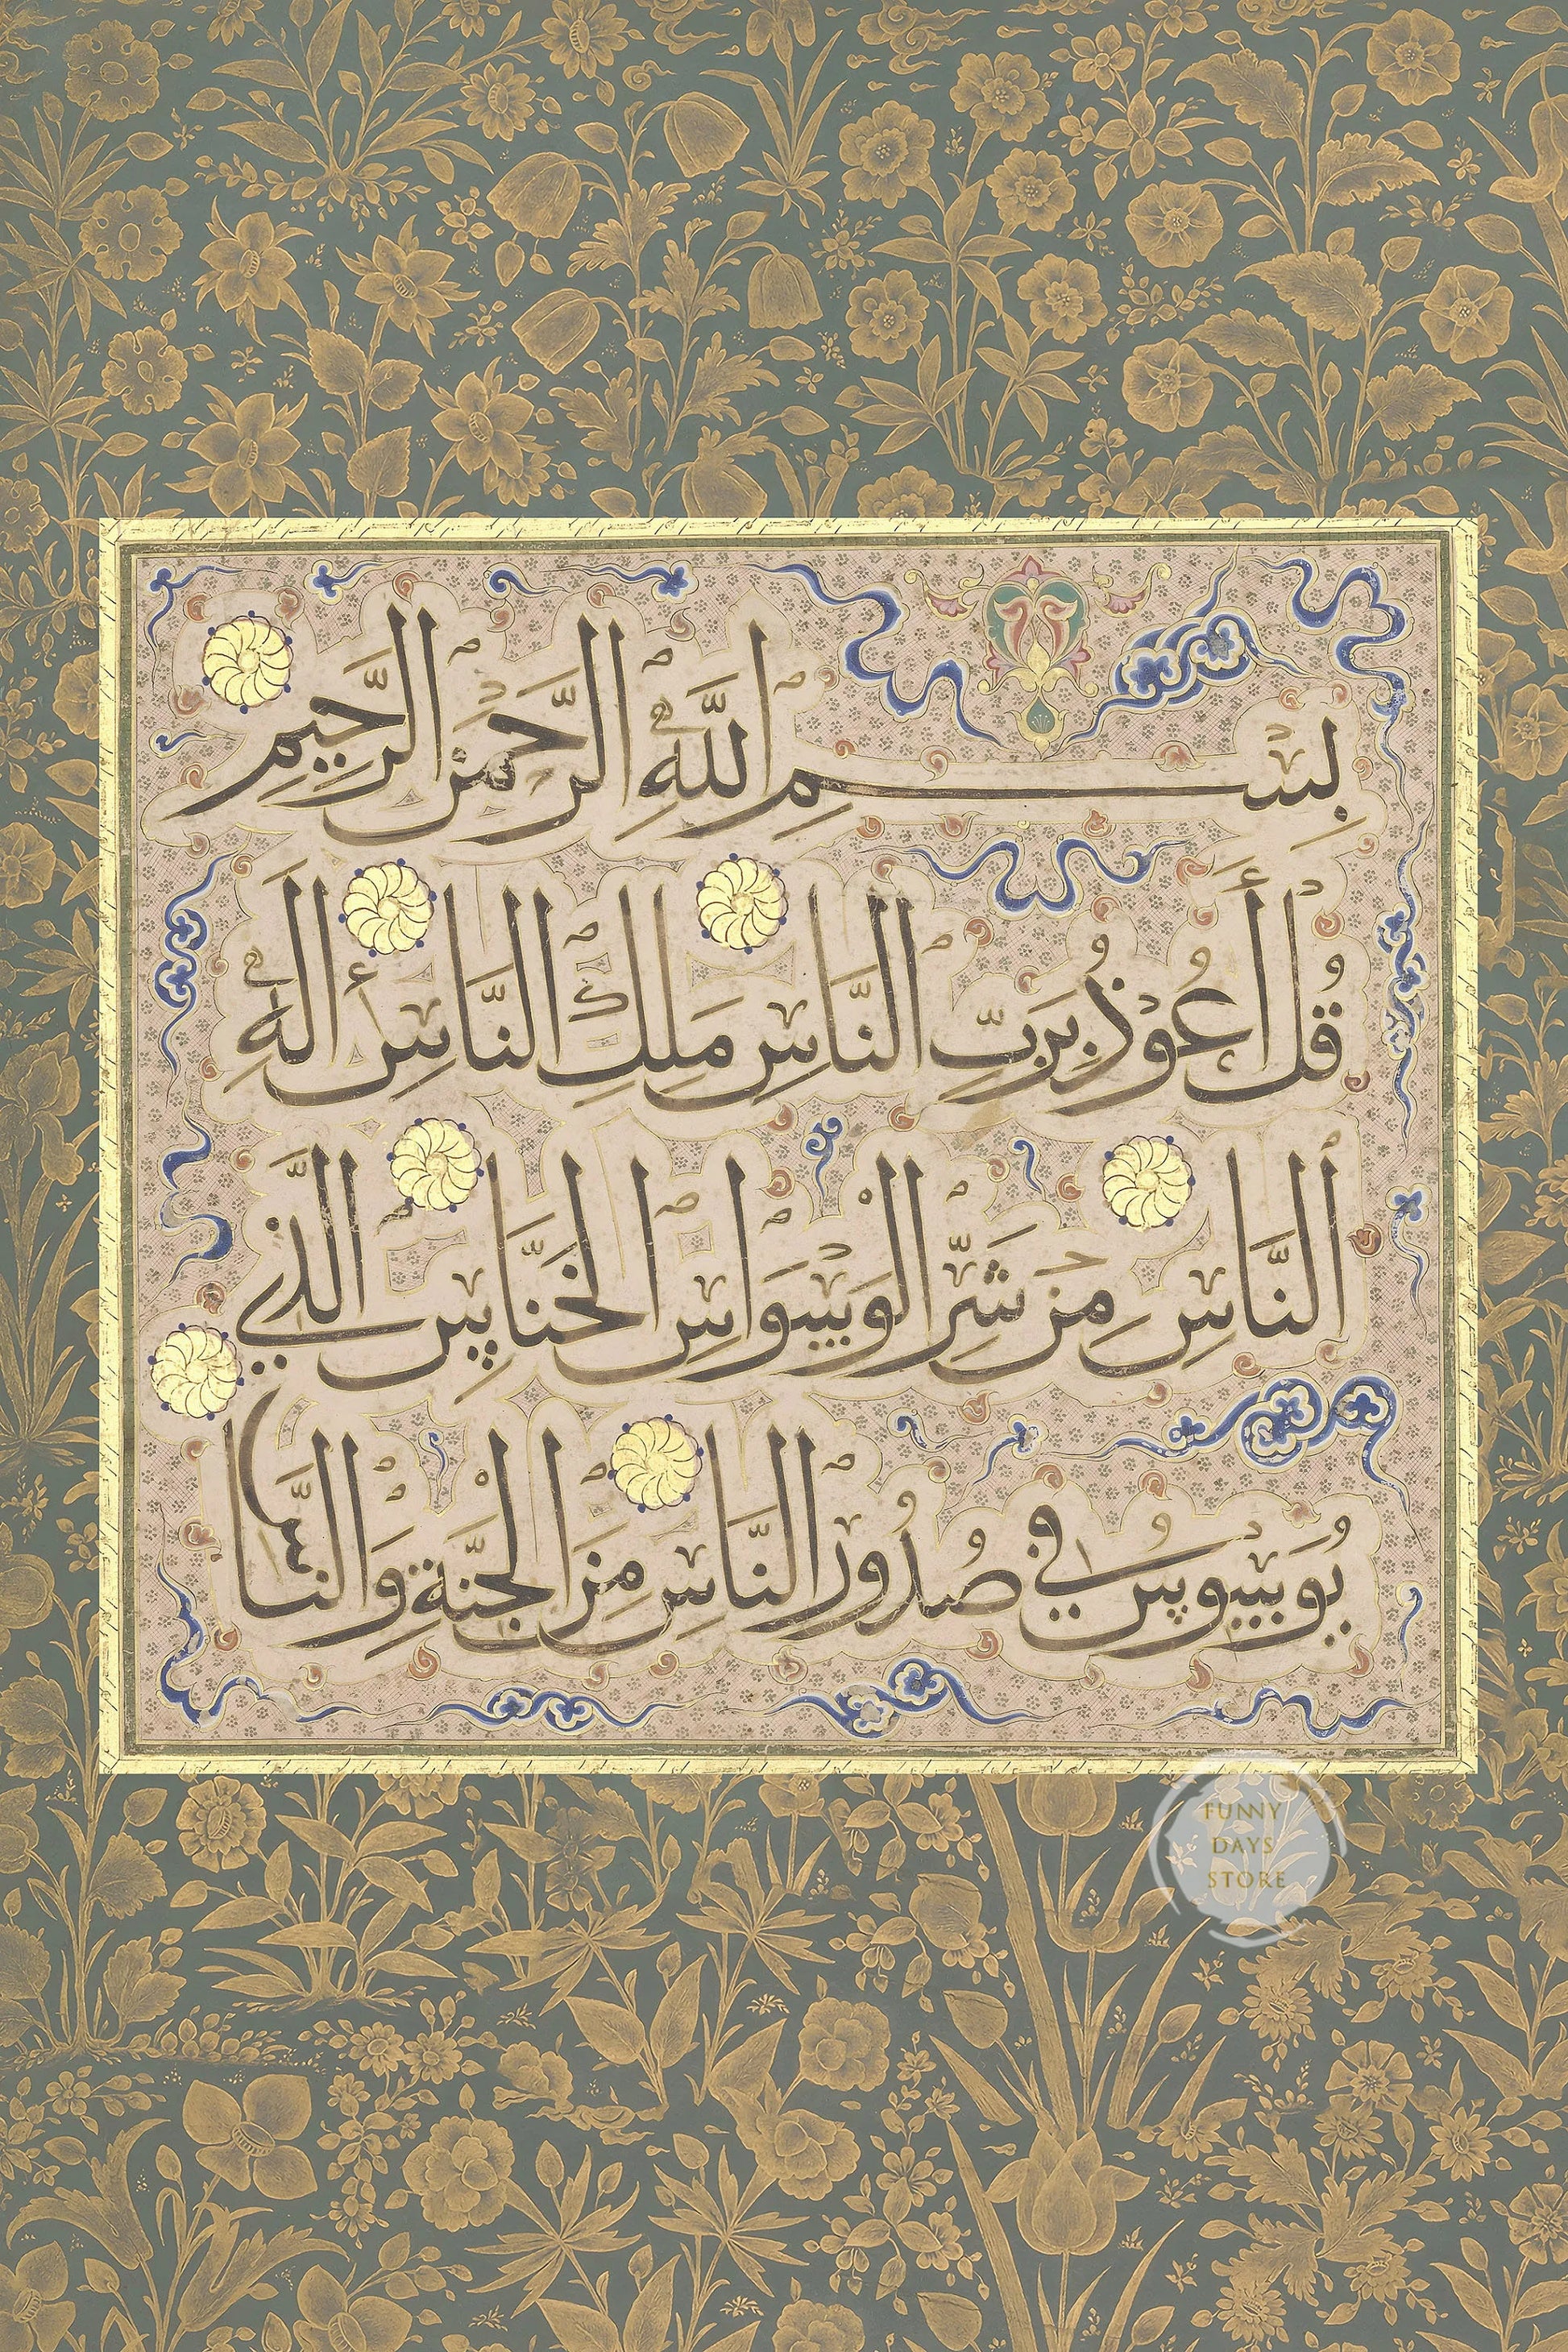 بِسْمِ اللَّهِ الرَّحْمَنِ الرَّحِيمِ
قُلْ أَعُوْذُ بِرَبِّ النَّاسِ مَلِكِ النَّاسِ إِلَهِ
النَّاسِ مِنْ شَرِّ الْوَسْوَاسِ الْخَنَّاسِ الَّذِي
يُوَسْوِسُ فِي صُدُوْرِ النَّاسِ مِنَ الْجِنَّةِ وَالنَّاسِ
FUNNY
DAYS
STORE